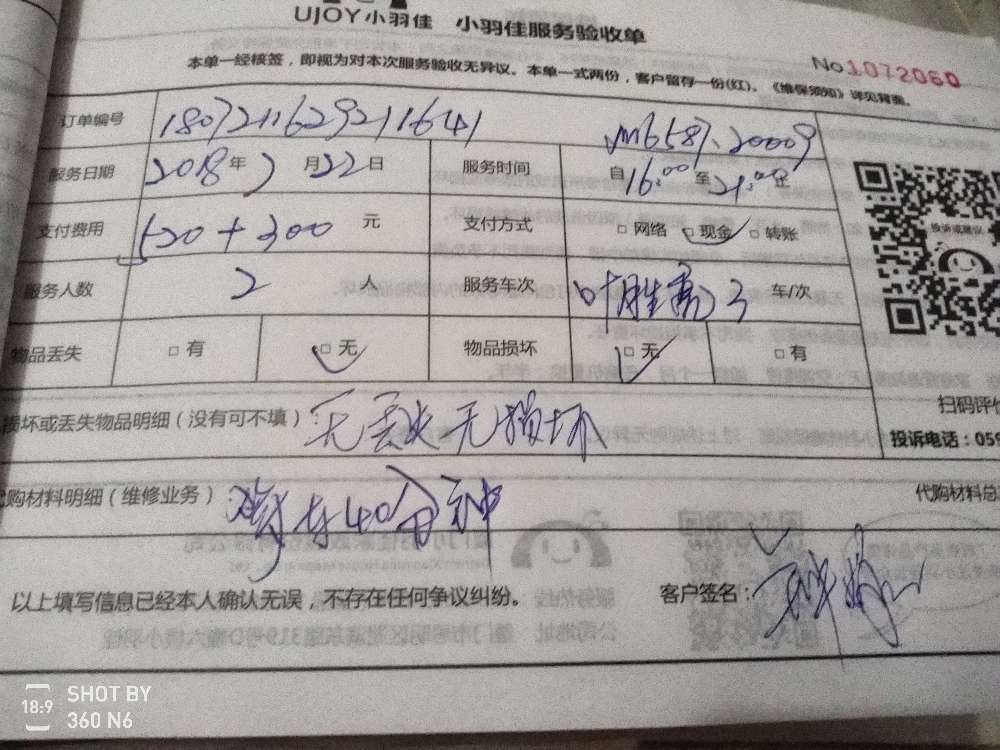 UJOY小羽佳 小羽佳服务验收单
No 1072060
本单一经核签，即视为对本次服务验收无异议。本单一式两份，客户留存一份(红)。《维保须知》详见背面。
订单编号 180721162921 1641
服务日期 2018年7月22日 服务时间 自16:00至21:00止
支付费用 520+300元 支付方式 □网络 □现金 □转账
投诉或建议
服务人数 2人 服务车次 3车/次
物品丢失 □有 □无 物品损坏 □无 □有
损坏或丢失物品明细（没有可不填）：无丢失无损坏
扫码评价
投诉电话：059
代购材料明细（维修业务） 40分钟
代购材料总
以上填写信息已经本人确认无误，不存在任何争议纠纷。 客户签名：
18:9 SHOT BY
360 N6